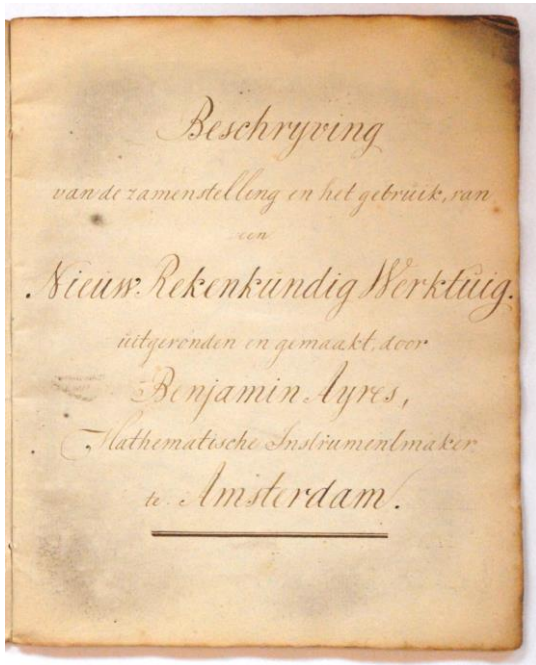 Beschryving
van de zamenstelling en het gebruik, van
een
Nieuw Rekenkundig Werktuig.
uitgevonden en gemaakt, door
Benjamin Ayres,
Mathematische Instrumentmaker
te Amsterdam.